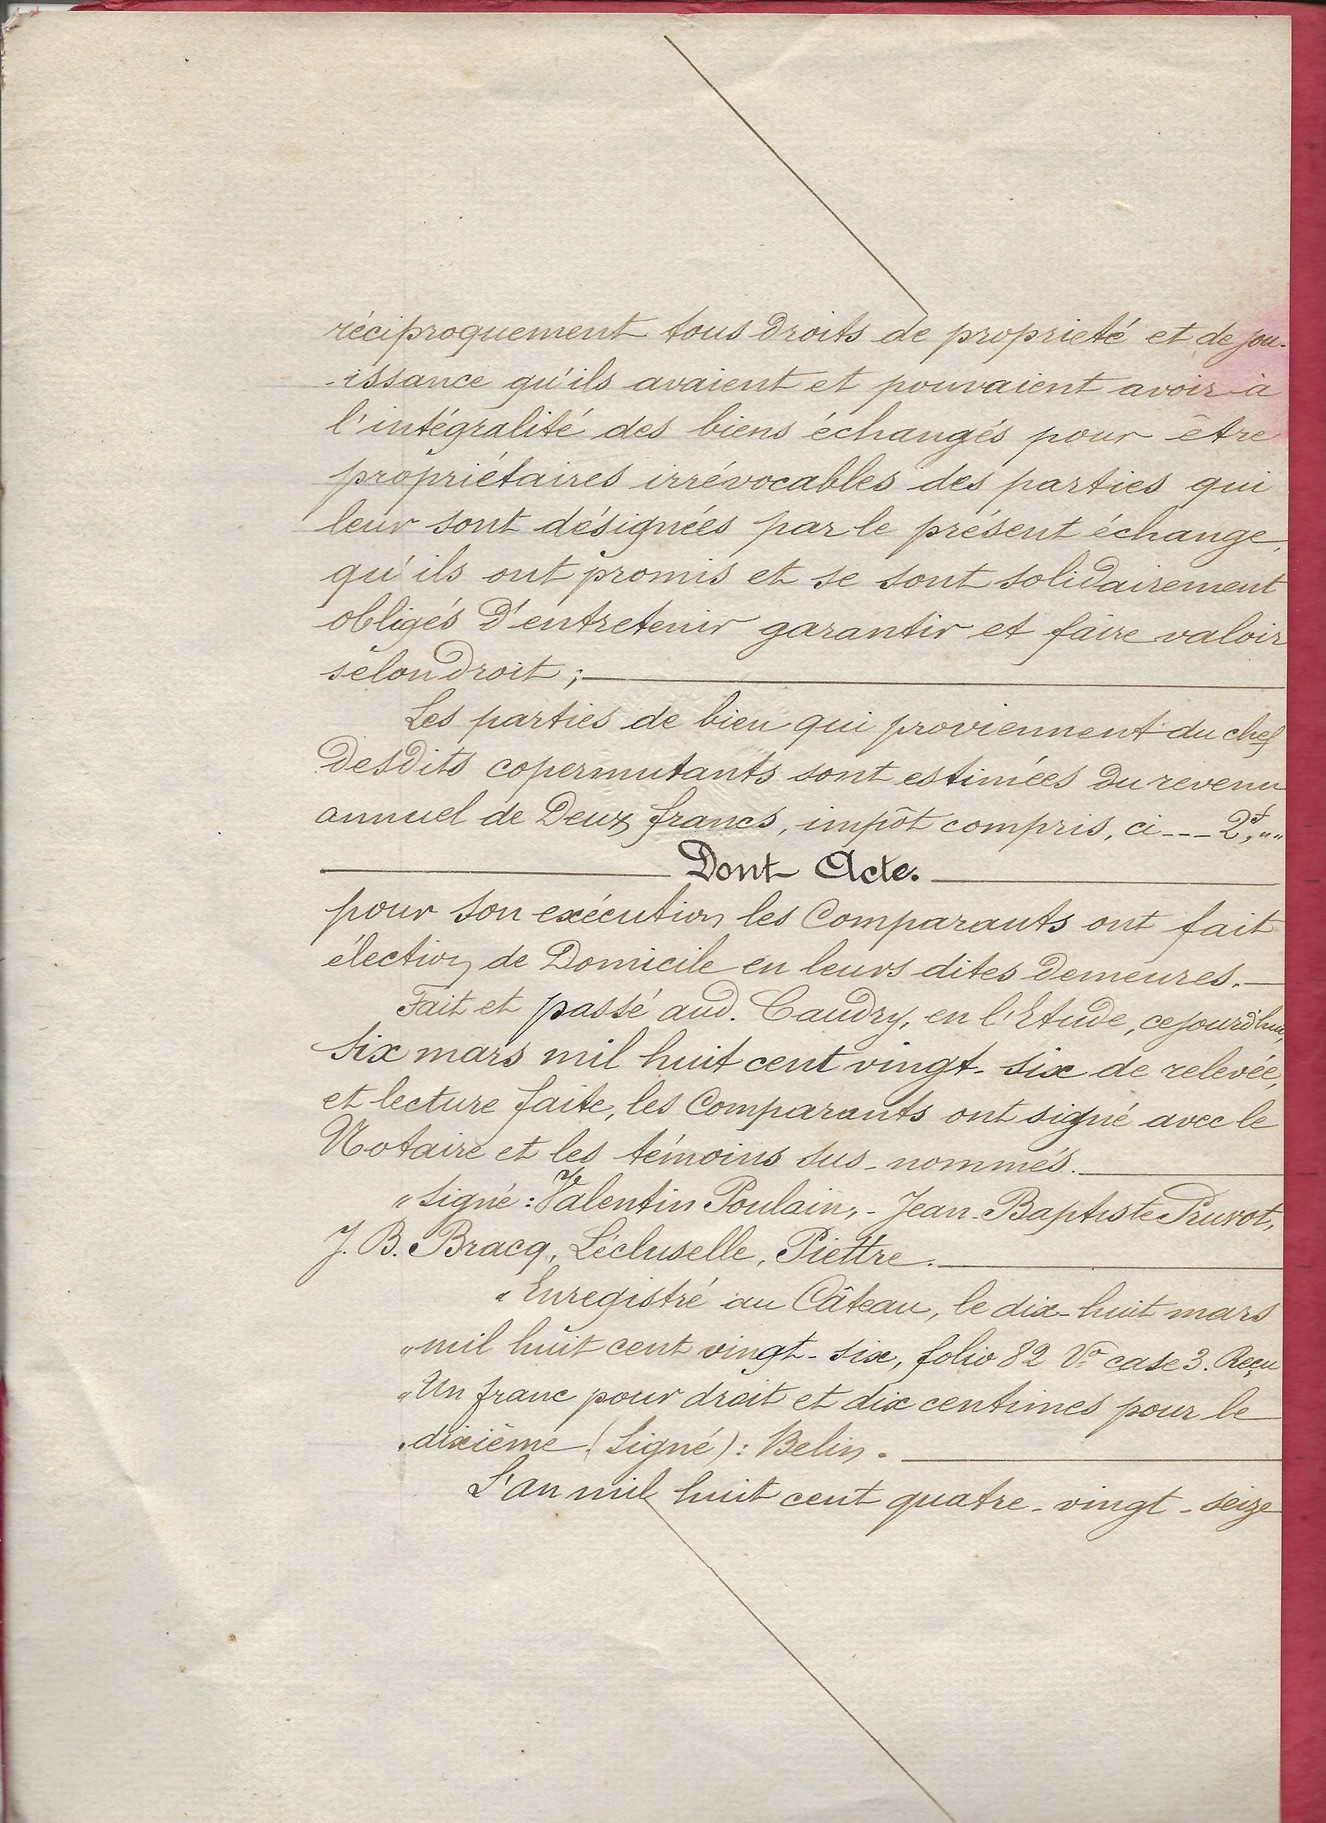 réciproquement tous droits de propriété et de jou-
-issance qu'ils avaient et pouvaient avoir à
l'intégralité des biens échangés pour être
propriétaires irrévocables des parties qui
leur sont désignées par le présent échange,
qu'ils ont promis et se sont solidairement
obligés d'entretenir garantir et faire valoir
selon droit ;
Les parties de bien qui proviennent du chef
desdits copermutants sont estimées du revenu
annuel de Deux francs, impôt compris, ci --- 2f,""
Dont Acte.
pour son exécution les Comparants ont fait
élection de Domicile en leurs dites demeures.
Fait et passé aud. Caudry, en l'Etude, cejourd'hui,
six mars mil huit cent vingt-six de relevée,
et lecture faite, les Comparants ont signé avec le
Notaire et les témoins sus-nommés.
"Signé : Valentin Poulain, - Jean-Baptiste Pruvot,
J. B. Bracq, Lécluselle, Piettre.
"Enregistré au Câteau, le dix-huit mars
"mil huit cent vingt-six, folio 82 Vo case 3. Reçu
"Un franc pour droit et dix centimes pour le
"dixième (Signé) : Belin.
L'an mil huit cent quatre-vingt-seize